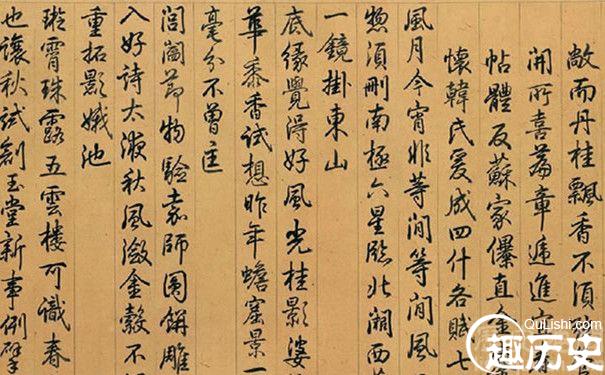 敞而丹桂飄香不須
開所喜篇章遞進
帖體反蘇家儤直金
懷韓氏爰成四什各賦七
風月今宵非等閒等閒風
惣須刪南極六星臨北湖西
一鏡掛東山
底緣覺得好風光桂影婆
華黍香試想昨年蟾窟景一
毫分不曾匡
閶闔節物驗師圓餅雕
入好詩太液秋風瀲金縠不
重拓影娥池
璇霄珠露五雲樓可識春
也讓秋試創玉堂新事例擘
QuLishi.com
趣历史